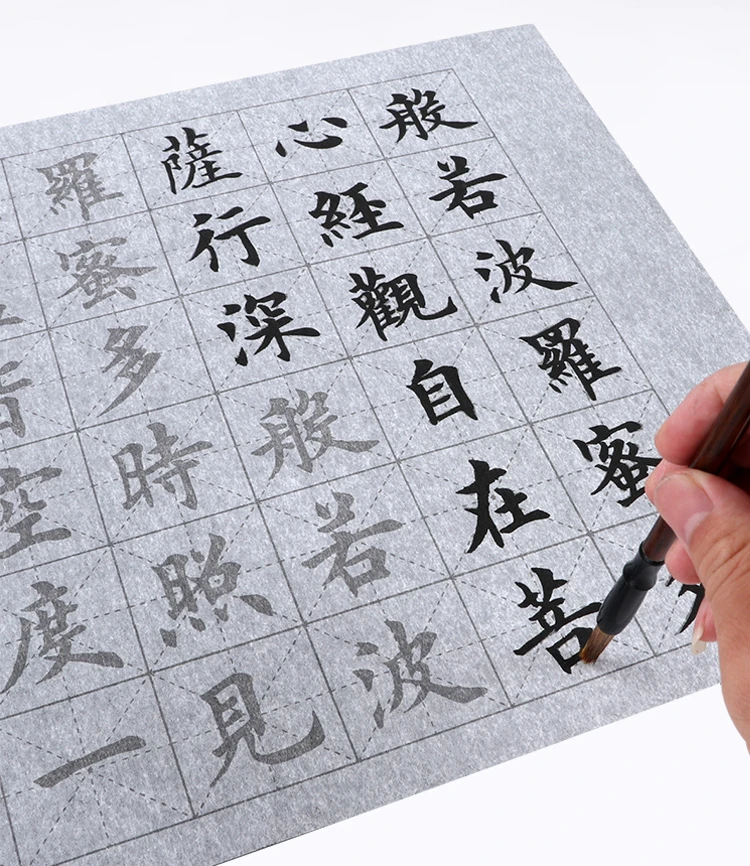 般若波羅蜜
心經觀自在菩
薩行深般若波
羅蜜多時照見
空度一